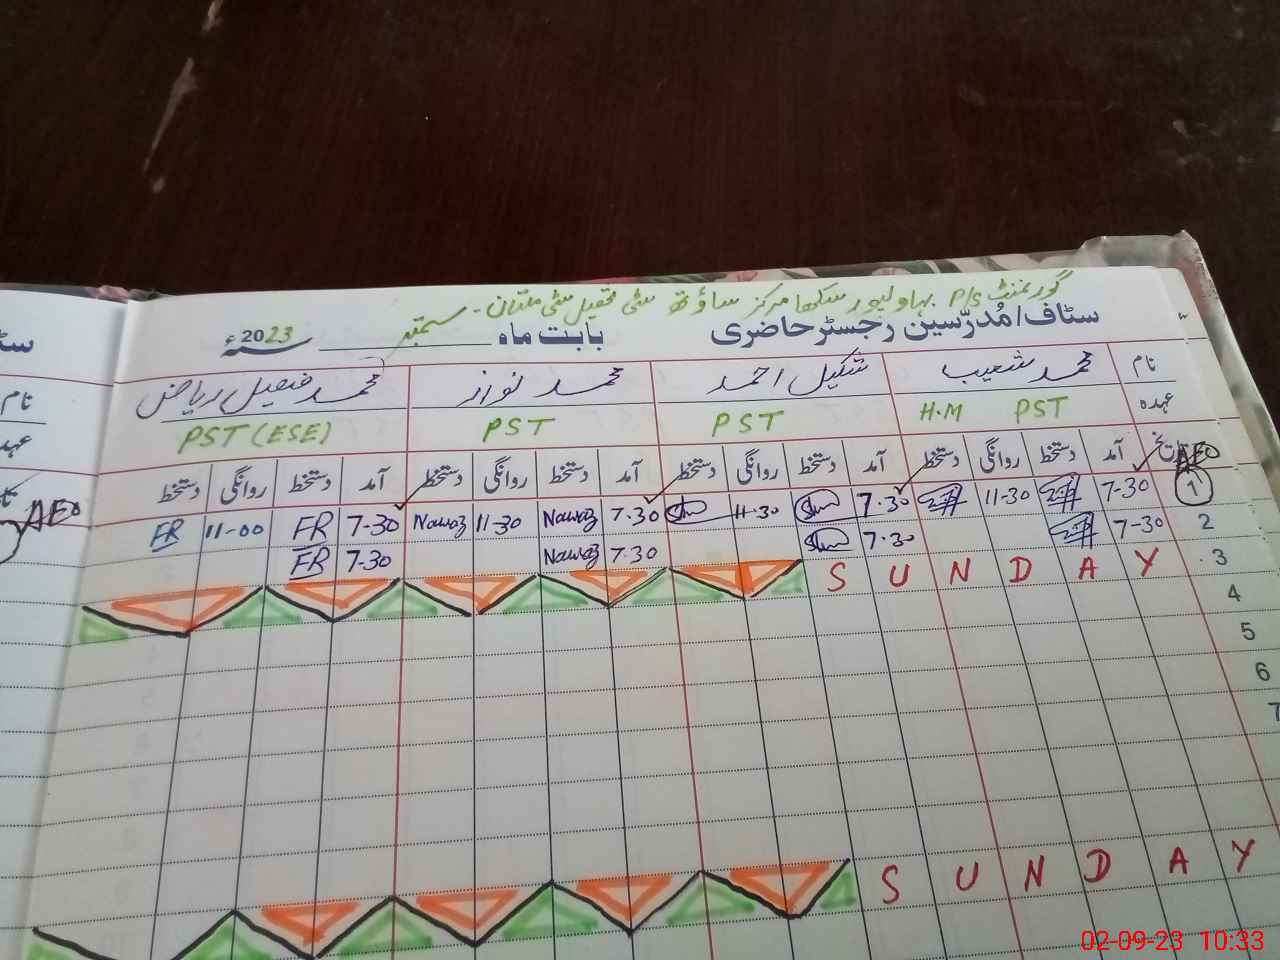 گورنمنٹ P/S بہاولپور سکھا مرکز ساؤتھ سٹی تحصیل سٹی ملتان -
سٹاف/مُدرّسین رجسٹر حاضری بابت ماہ ستمبر سنہ 2023ء
نام محمد شعیب شکیل احمد محمد نواز محمد فیصل ریاض
عہدہ H.M PST PST PST PST (ESE)
تاریخ آمد دستخط روانگی دستخط آمد دستخط روانگی دستخط آمد دستخط روانگی دستخط آمد دستخط روانگی دستخط
AEO
1 7-30 11-30 7.30 11.30 7.30 Nawaz 11-30 Nawaz 7-30 FR 11-00 FR
2 7-30 7.30 7.30 Nawaz 7-30 FR
3 SUNDAY
4
5
6
7
SUNDAY
نام
عہدہ
AEO
02-09-23 10:33